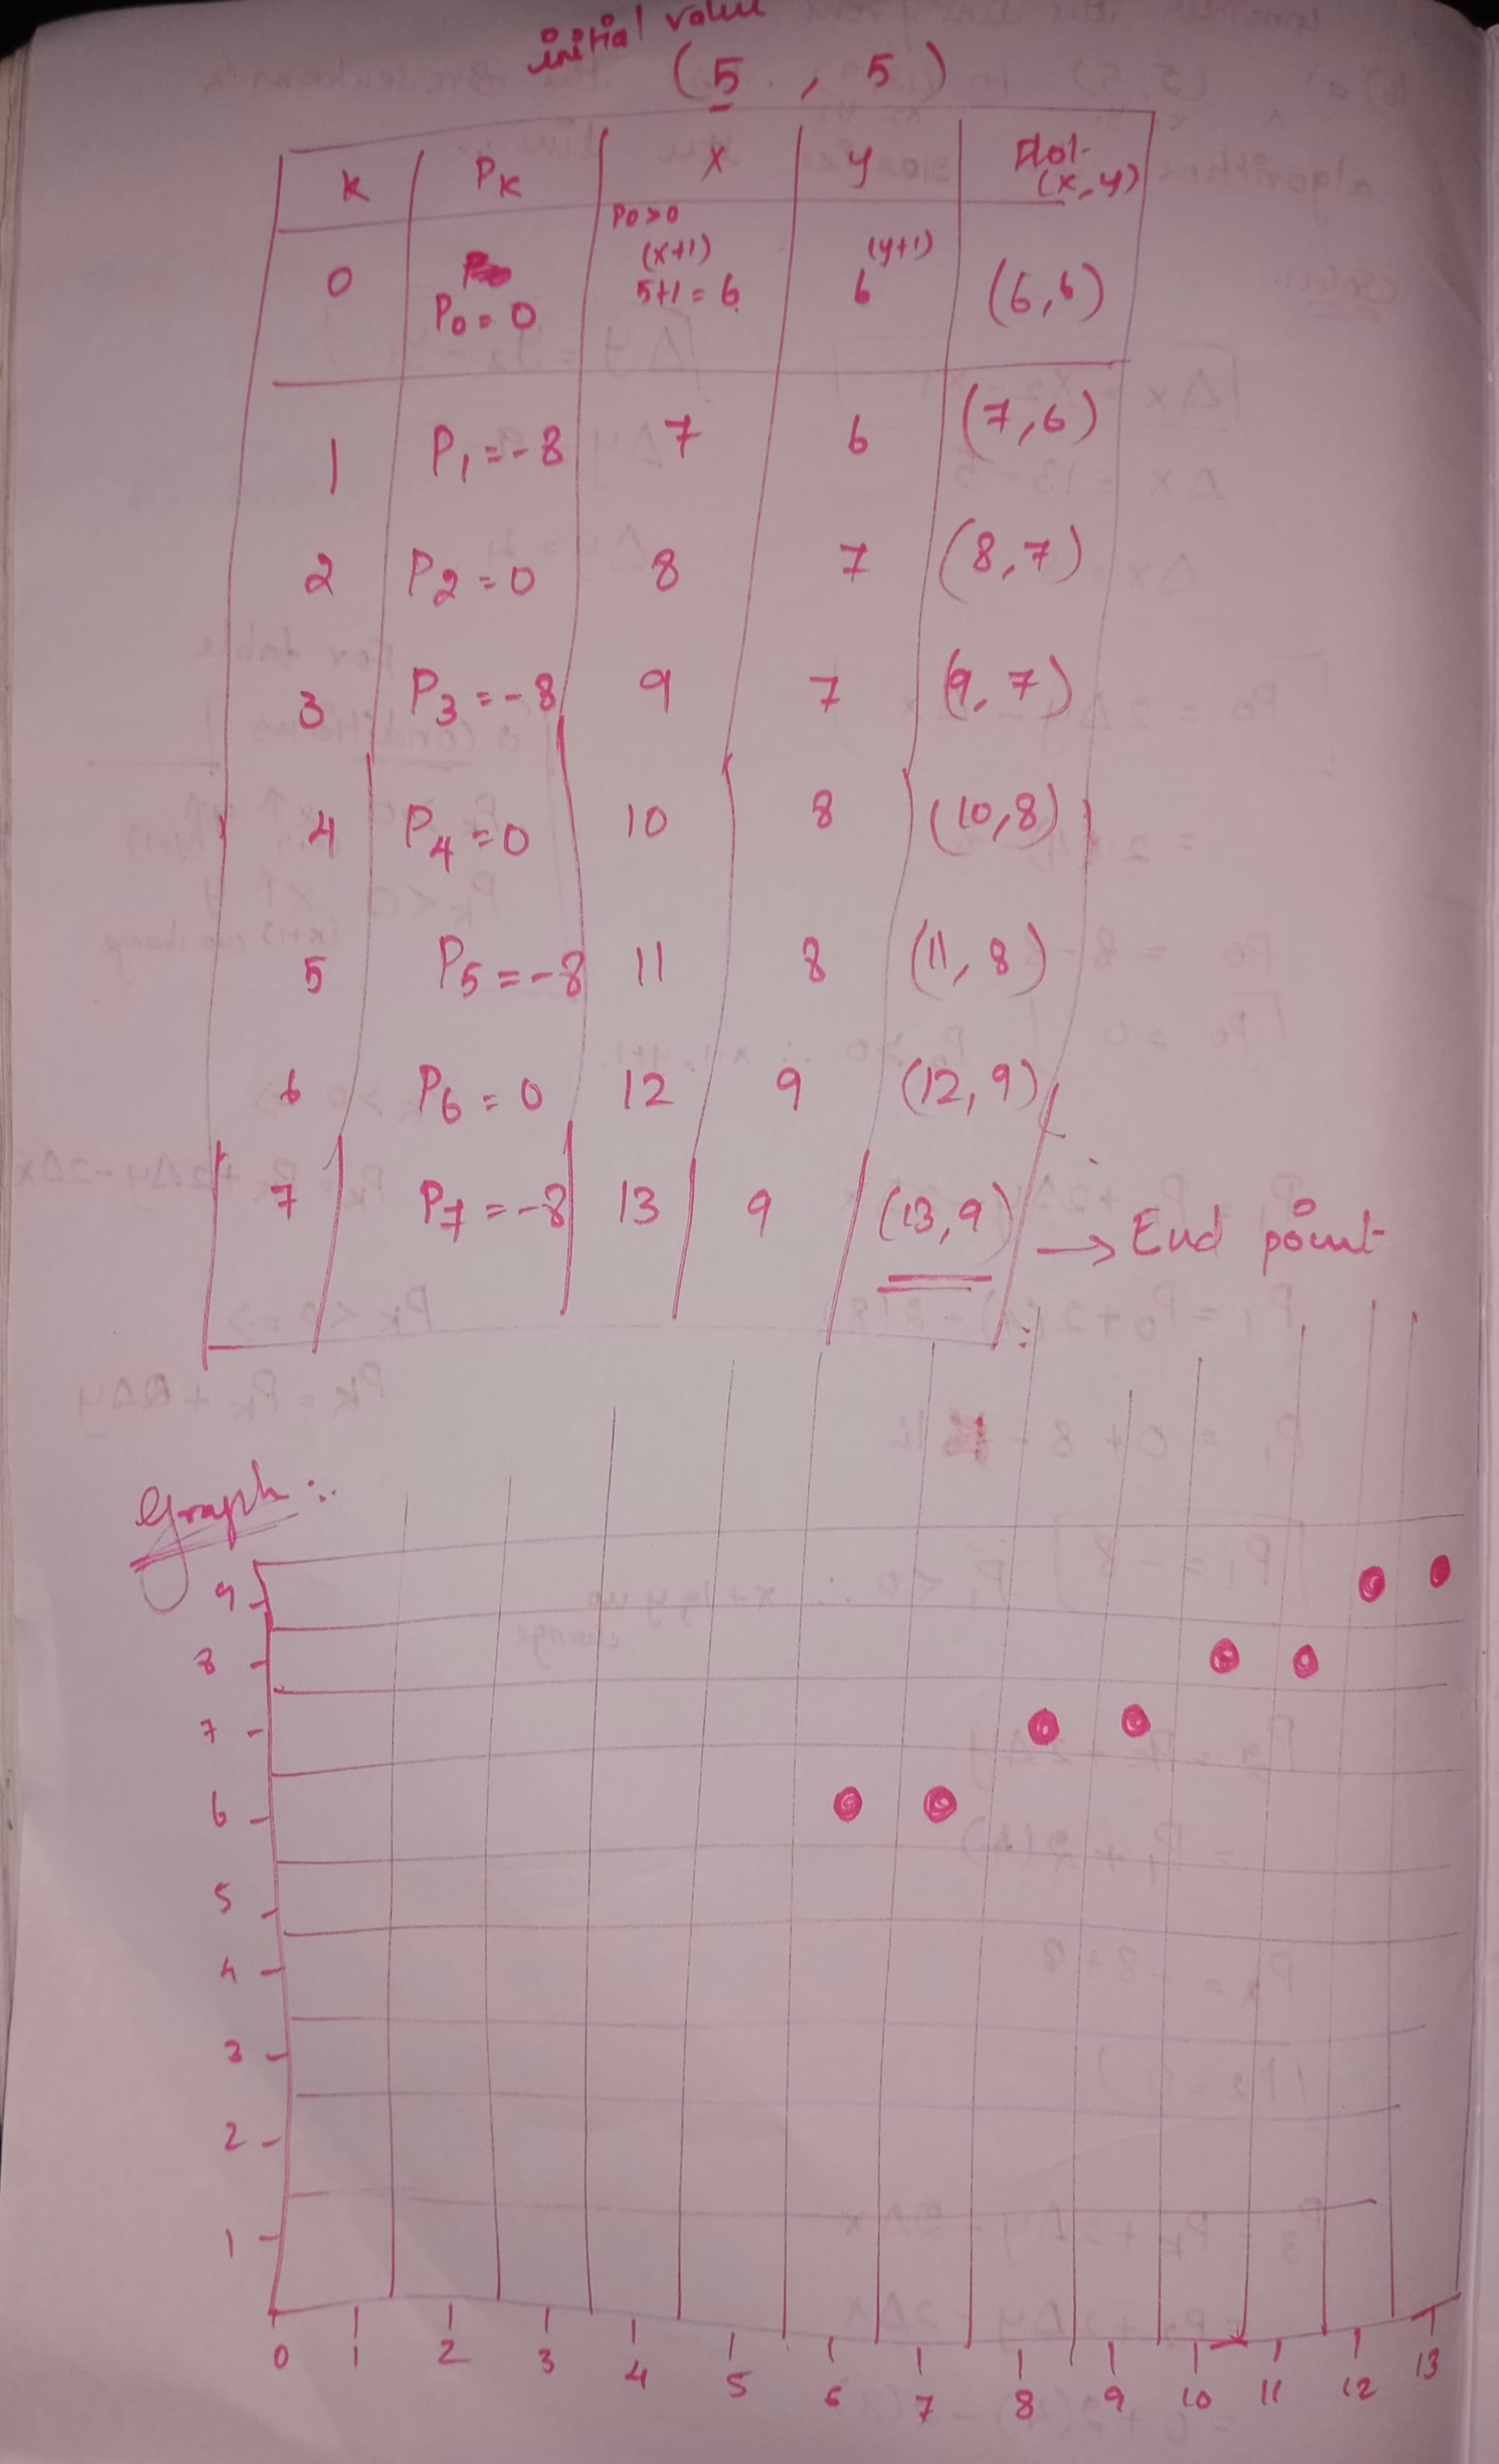 initial value
(5, 5)
K | PK | X | y | Plot (x,y)
0 | P0 = 0 | P0>0 (x+1) 5+1 = 6 | (y+1) 6 | (6,6)
1 | P1 = -8 | 7 | 6 | (7,6)
2 | P2 = 0 | 8 | 7 | (8,7)
3 | P3 = -8 | 9 | 7 | (9,7)
4 | P4 = 0 | 10 | 8 | (10,8)
5 | P5 = -8 | 11 | 8 | (11,8)
6 | P6 = 0 | 12 | 9 | (12,9)
7 | P7 = -8 | 13 | 9 | (13,9) → End point
Graph :-
9
8
7
6
5
4
3
2
1
0 1 2 3 4 5 6 7 8 9 10 11 12 13